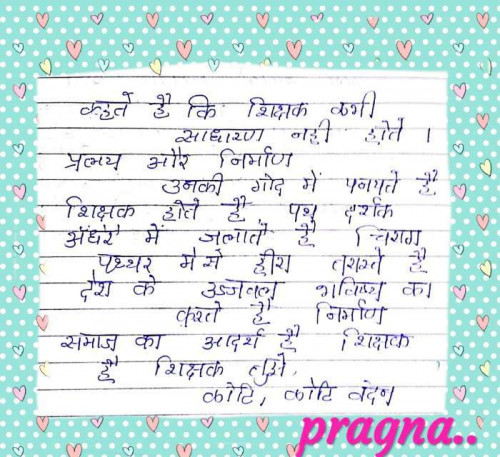 कहते है कि शिक्षक कभी
साधारण नही होते ।
प्रलय और निर्माण
उनकी गोद में पनपते है
शिक्षक होते है, पथ दर्शक
अंधेरे में जलाते है चिराग
पथ्थर मे से हीरा तरास्ते है
देश के उज्जवल भविष्य का
करते है निर्माण
समाज का आदर्श है शिक्षक
है शिक्षक तुझे,
कोटि, कोटि वंदन
pragna..